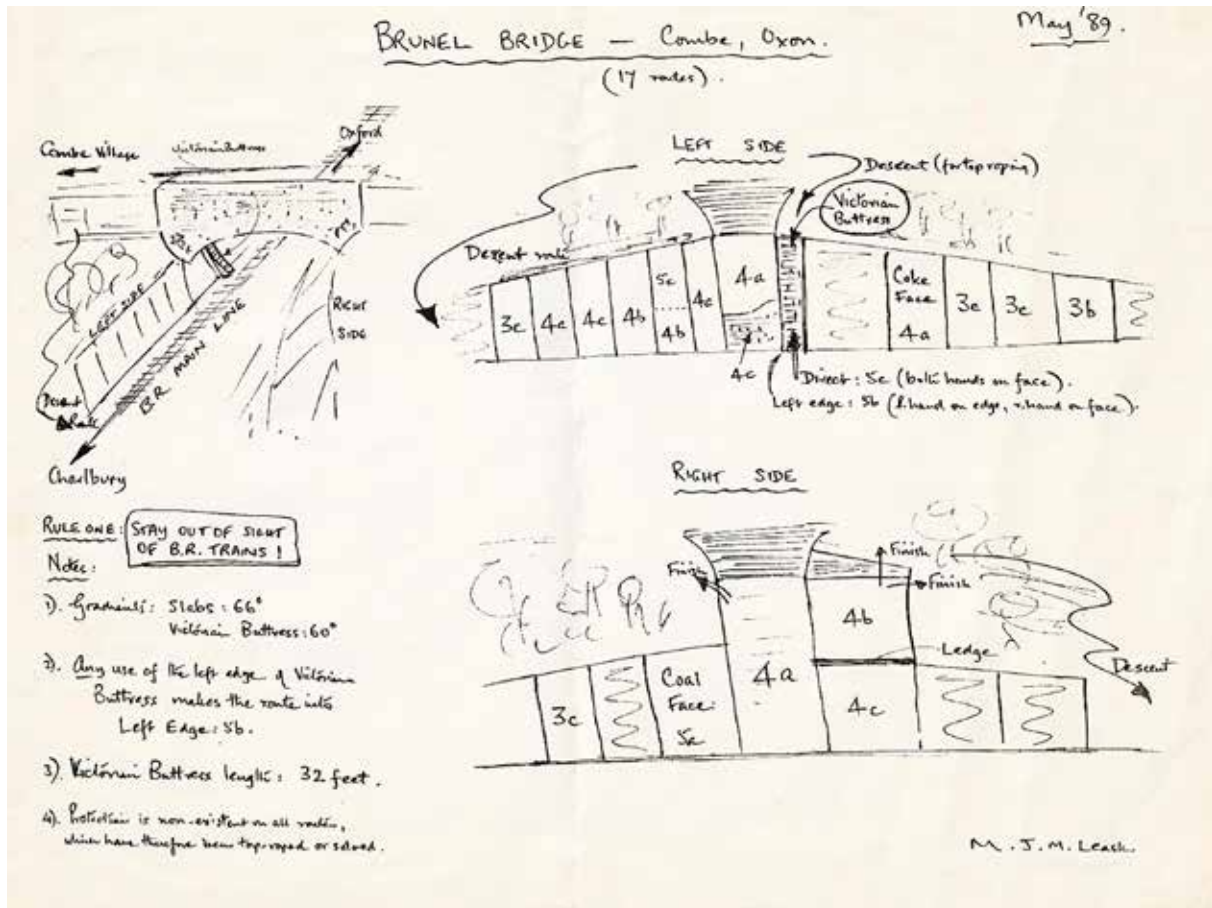 BRUNEL BRIDGE — Combe, Oxon.
(17 routes).
May '89.
Combe Village
Victorian Buttress
Oxford
LEFT SIDE
B.R. MAIN LINE
RIGHT
SIDE
Descent
Route
Charlbury
RULE ONE: STAY OUT OF SIGHT
OF B.R. TRAINS!
Notes:
1). Gradients: Slabs: 66°
Victorian Buttress: 60°
2). Any use of the left edge of Victorian
Buttress makes the route into
Left Edge: 5b.
3). Victorian Buttress length: 32 feet.
4). Protection is non-existent on all routes,
which have therefore been top-roped or soloed.
LEFT SIDE
Descent (for top roping)
Victorian
Buttress
Descent route
3c
4c
4c
4b
5c
4b
4c
4a
4c
Coke
Face
4a
3c
3c
3b
Direct: 5c (both hands on face).
Left edge: 5b (l. hand on edge, r. hand on face).
RIGHT SIDE
Finish
Finish
Finish
4b
Ledge
Descent
3c
Coal
Face:
5c
4a
4c
M. J. M. Leask.